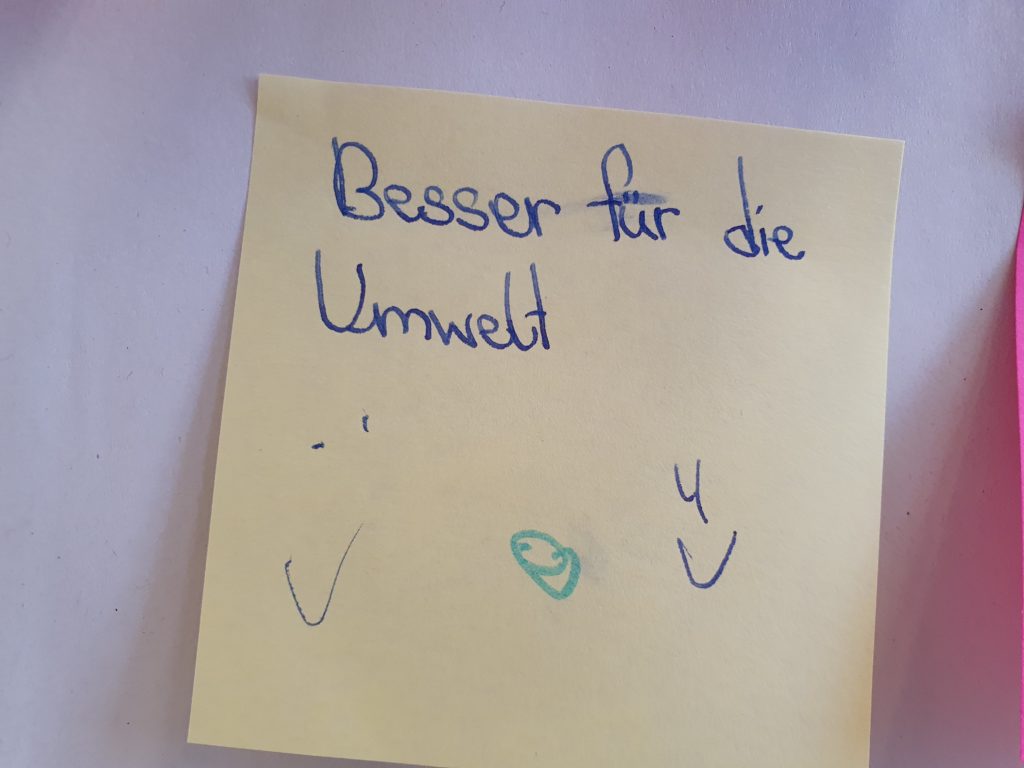 Besser für die
Umwelt
4